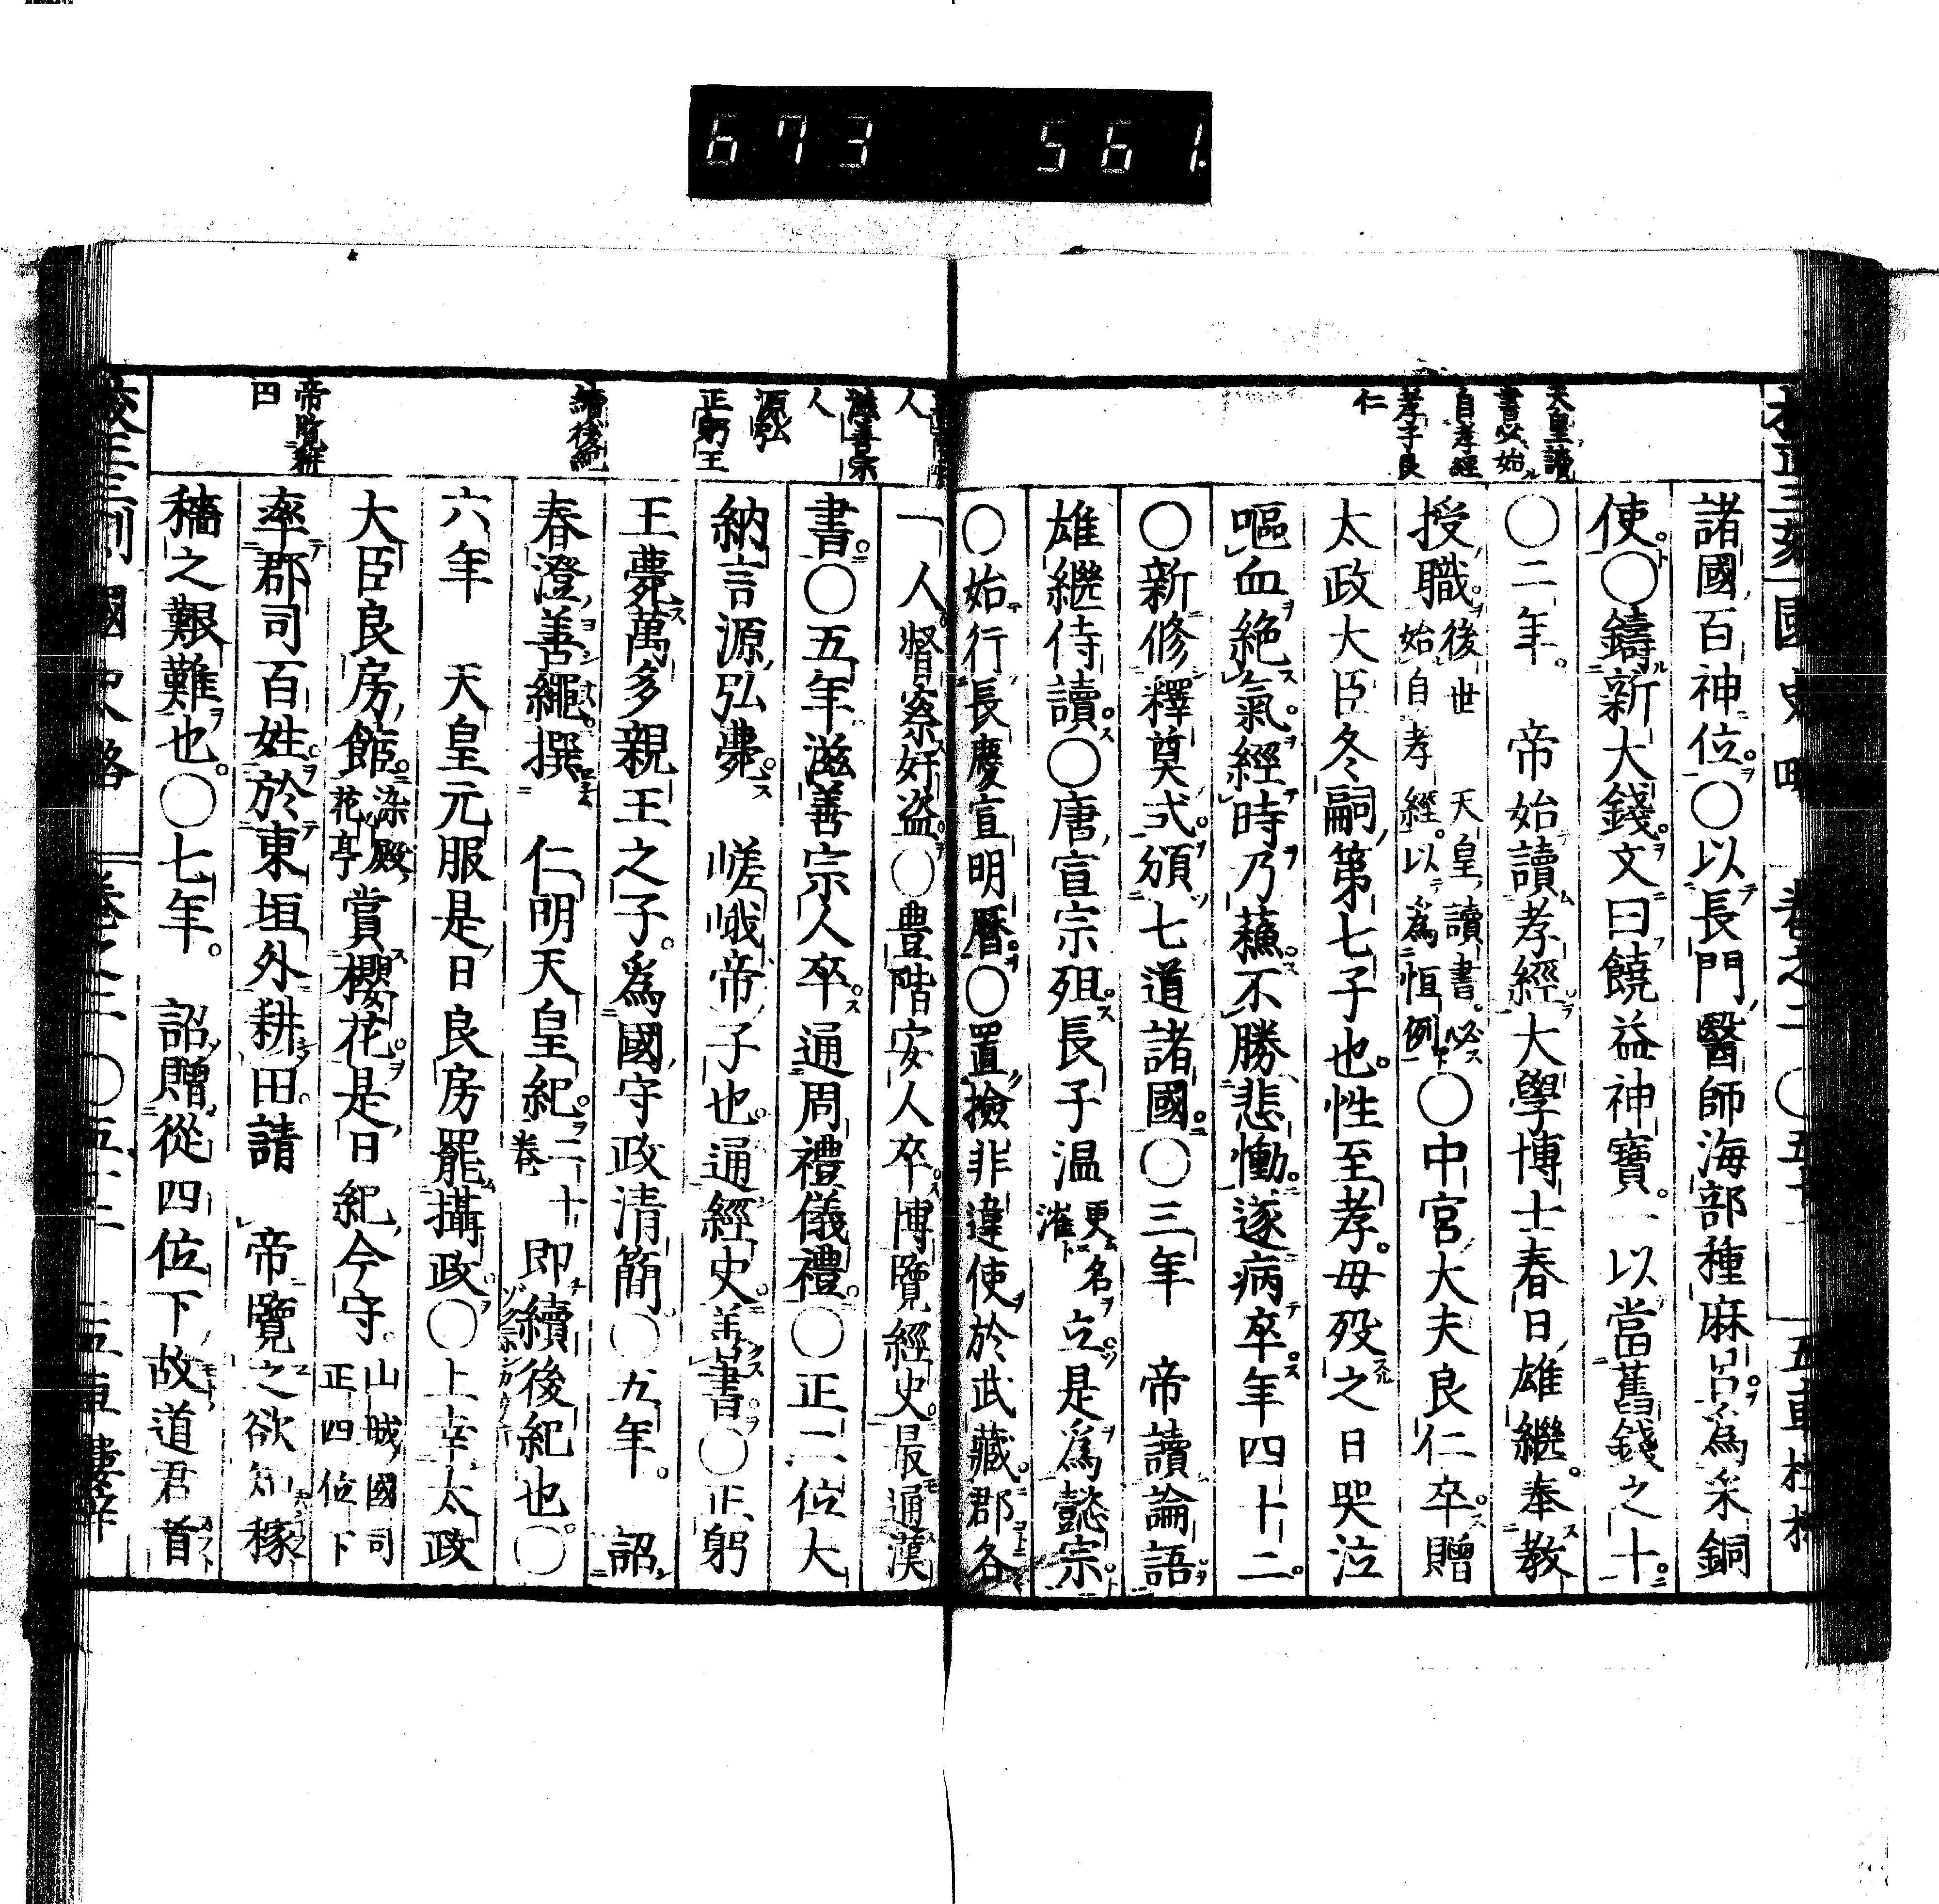 673 561.
天皇讀
書必始
自孝經
孝子良
仁
諸國百神位○以長門醫師海部種麻呂爲采銅
使○鑄新大錢文曰饒益神寶一以當舊錢之十
○二年帝始讀孝經大學博士春日雄繼奉教
授職後世天皇讀書必
始自孝經以爲恒例○中宮大夫良仁卒贈
太政大臣冬嗣第七子也性至孝母歿之日哭泣
嘔血絶氣經時乃蘇不勝悲慟遂病卒年四十二
○新修釋奠式頒七道諸國○三年帝讀論語
雄繼侍讀○唐宣宗殂長子温更名
漼立是爲懿宗
○始行長慶宣明曆○置撿非違使於武藏郡各
人
滋善宗
人
源弘
正躬王
續後紀
帝覽耕
田
一人督察奸盗○豊階安人卒博覽經史最通漢
書○五年滋善宗人卒通周禮儀禮○正二位大
納言源弘薨嵯峨帝子也通經史善書○正躬
王薨萬多親王之子爲國守政清簡○五年詔
春澄善繩撰仁明天皇紀二十
卷即續後紀也○
六年天皇元服是日良房罷攝政○上幸太政
大臣良房館染殿
花亭賞櫻花是日紀今守山城國司
正四位下
率郡司百姓於東垣外耕田請帝覽之欲知稼
穡之艱難也○七年詔贈從四位下故道君首